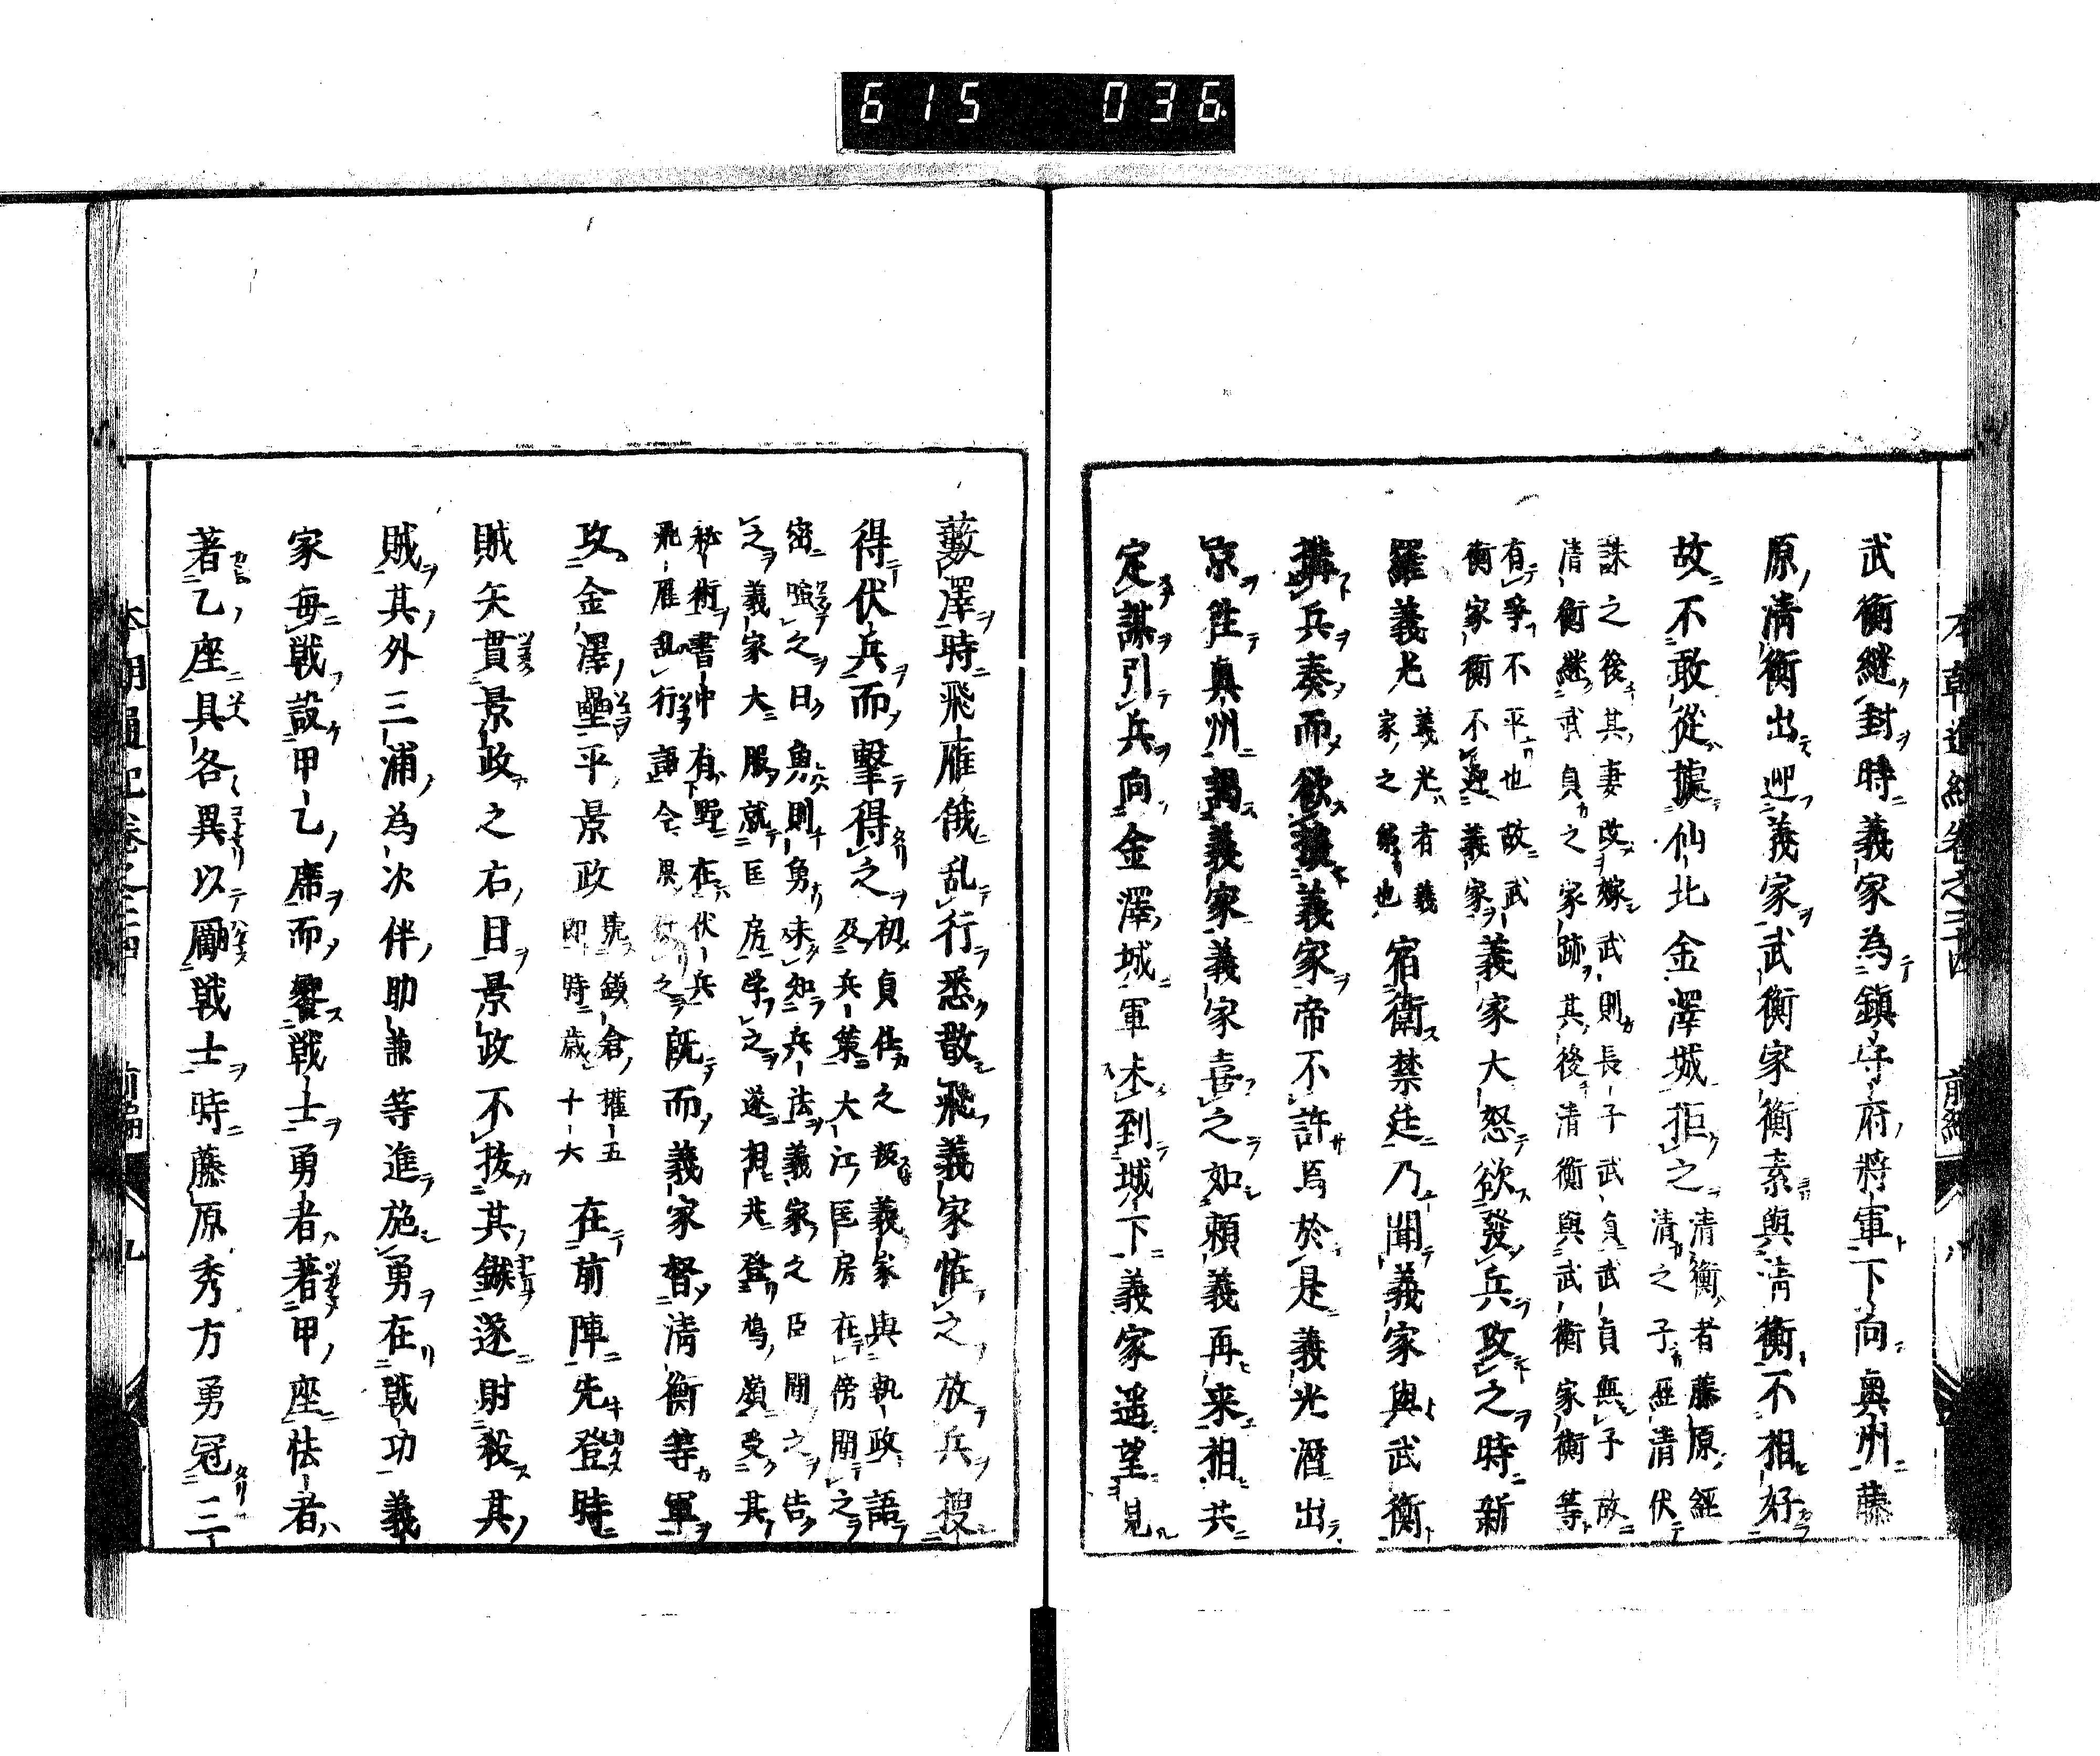 615 036
武衡継封時義家為鎮守府將軍下向奥州藤
原清衡出迎義家武衡家衡素與清衡不相好
故不敢從據仙北金澤城拒之清衡者藤原経
清之子経清伏
誅之後其妻改嫁武則長子武貞武貞無子故
清衡継武貞之家跡其後清衡與武衡家衡等
有爭不平也故武
衡家衡不迎義家義家大怒欲發兵攻之時新
羅義光義光者義
家之弟也宿衛禁廷乃聞義家與武衡
搆兵奏而欲援義家帝不許焉於是義光潛出
京徃奥州謁義家義家喜之如頼義再来相共
定謀引兵向金澤城軍未到城下義家遥望見
藪澤時飛雁俄乱行悉散飛義家恠之放兵捜
得伏兵而擊得之初貞任之叛義家與執政語
及兵策大江匡房在傍聞之
密嗤之曰勇則勇未知兵法義家之臣聞之告
之義家大服就匡房学之遂相共登鳩嶺受其
秘術書中有野在伏兵
飛雁乱行語今果既而義家督清衡等軍
攻金澤壘平景政號鎌倉權五
即時歳十六在前陣先登時
賊矢貫景政之右目景政不抜其鏃遂射殺其
賊其外三浦為次伴助兼等進施勇在戦功義
家毎戦設甲乙席而饗戦士勇者著甲座怯者
著乙座具各異以勵戦士時藤原秀方勇冠三